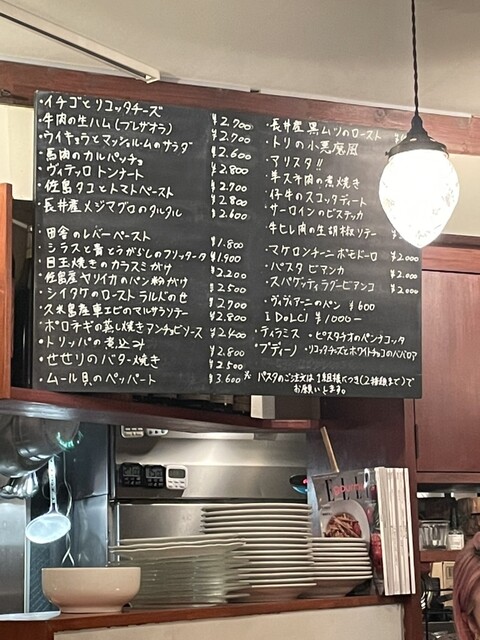 ・イチゴとリコッタチーズ ¥2,700
・牛肉の生ハム(ブレザオラ) ¥2,700
・ウイキョウとマッシュルムのサラダ ¥2,600
・馬肉のカルパッチョ ¥2,800
・ヴィテッロ トンナート ¥2,700
・佐島タコとトマトペースト ¥2,800
・長井産メジマグロのタルタル ¥2,600
・田舎のレバーペースト ¥1,800
・シラスと青とうがらしのフリッタータ ¥1,900
・目玉焼きのカラスミがけ ¥2,200
・佐島産ヤリイカのパン粉がけ ¥2,500
・シイタケのロースト ラルドのせ ¥2,700
・久米島産車エビのマルサラソテー ¥2,800
・ポロネギの蒸し焼きアンチョビソース ¥2,400
・トリッパの煮込み ¥2,800
・せせりのバター焼き ¥2,500
・ムール貝のペッパート ¥3,600
・長井産 黒ムツのロースト
・トリの小悪魔風
・アリスタ!!
・羊スネ肉の煮焼き
・仔牛のスコッタディート
・サーロインのビステッカ
・牛ヒレ肉の生胡椒ソテー
・マケロンチーニ ポモドーロ ¥2,000
・パスタ ビアンカ ¥2,000
・スパゲッティラグービアンコ ¥2,000
・ヴィヴィアーニのパン ¥600
I DOLCI ¥1000-
・ティラミス ・ピスタチオのパンナコッタ
・ブディーノ ・リコッタチーズとホワイトチョコのババロア
パスタのご注文は1組様につき(2種類まで)で
お願いします。